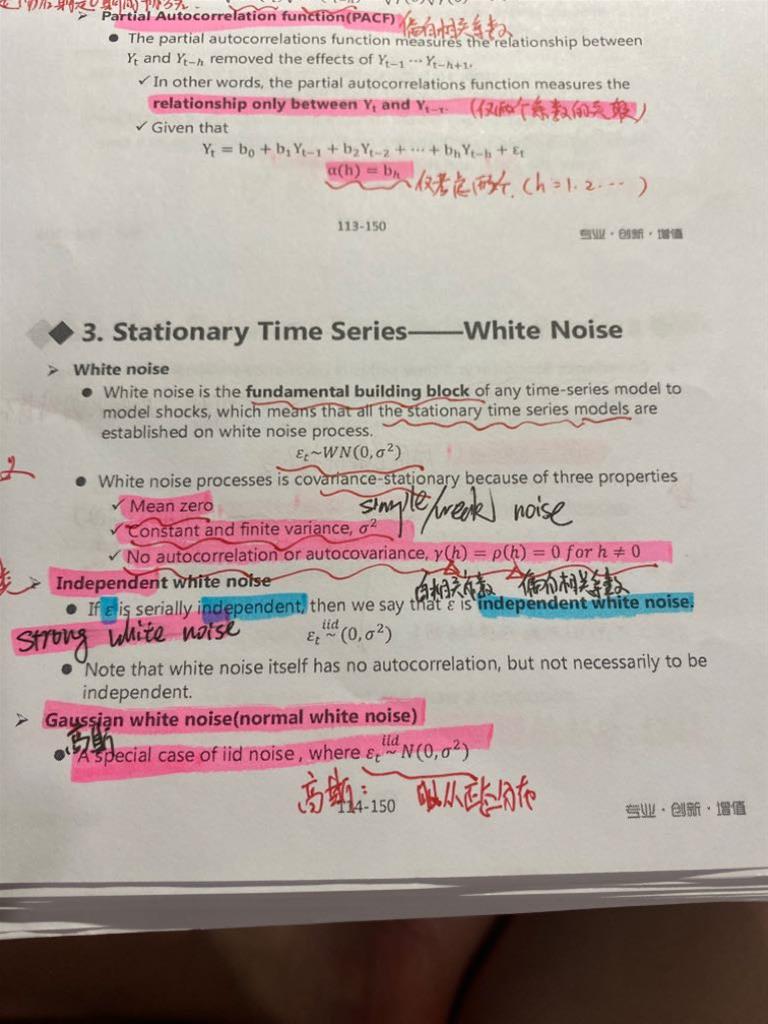 Partial Autocorrelation function(PACF) 偏自相关系数
● The partial autocorrelations function measures the relationship between
Yₜ and Yₜ₋ₕ removed the effects of Yₜ₋₁ ⋯ Yₜ₋ₕ₊₁.
✓ In other words, the partial autocorrelations function measures the
relationship only between Yₜ and Yₜ₋τ. (仅两个系数的关联)
✓ Given that
Yₜ = b₀ + b₁Yₜ₋₁ + b₂Yₜ₋₂ + ⋯ + bₕYₜ₋ₕ + εₜ
α(h) = bₕ 仅考虑两个. (h=1.2.⋯)
113-150
专业·创新·增值
◆ 3. Stationary Time Series——White Noise
➢ White noise
● White noise is the fundamental building block of any time-series model to
model shocks, which means that all the stationary time series models are
established on white noise process.
εₜ~WN(0,σ²)
● White noise processes is covariance-stationary because of three properties
✓ Mean zero
simple/(weak) noise
✓ Constant and finite variance, σ²
✓ No autocorrelation or autocovariance, γ(h) = ρ(h) = 0 for h ≠ 0
➢ Independent white noise
自相关系数 偏自相关系数
● If ε is serially independent, then we say that ε is independent white noise.
Strong white noise
εₜ iid~ (0,σ²)
● Note that white noise itself has no autocorrelation, but not necessarily to be
independent.
➢ Gaussian white noise(normal white noise)
高斯
● A special case of iid noise, where εₜ iid~ N(0,σ²)
高斯: 服从正态分布
114-150
专业·创新·增值